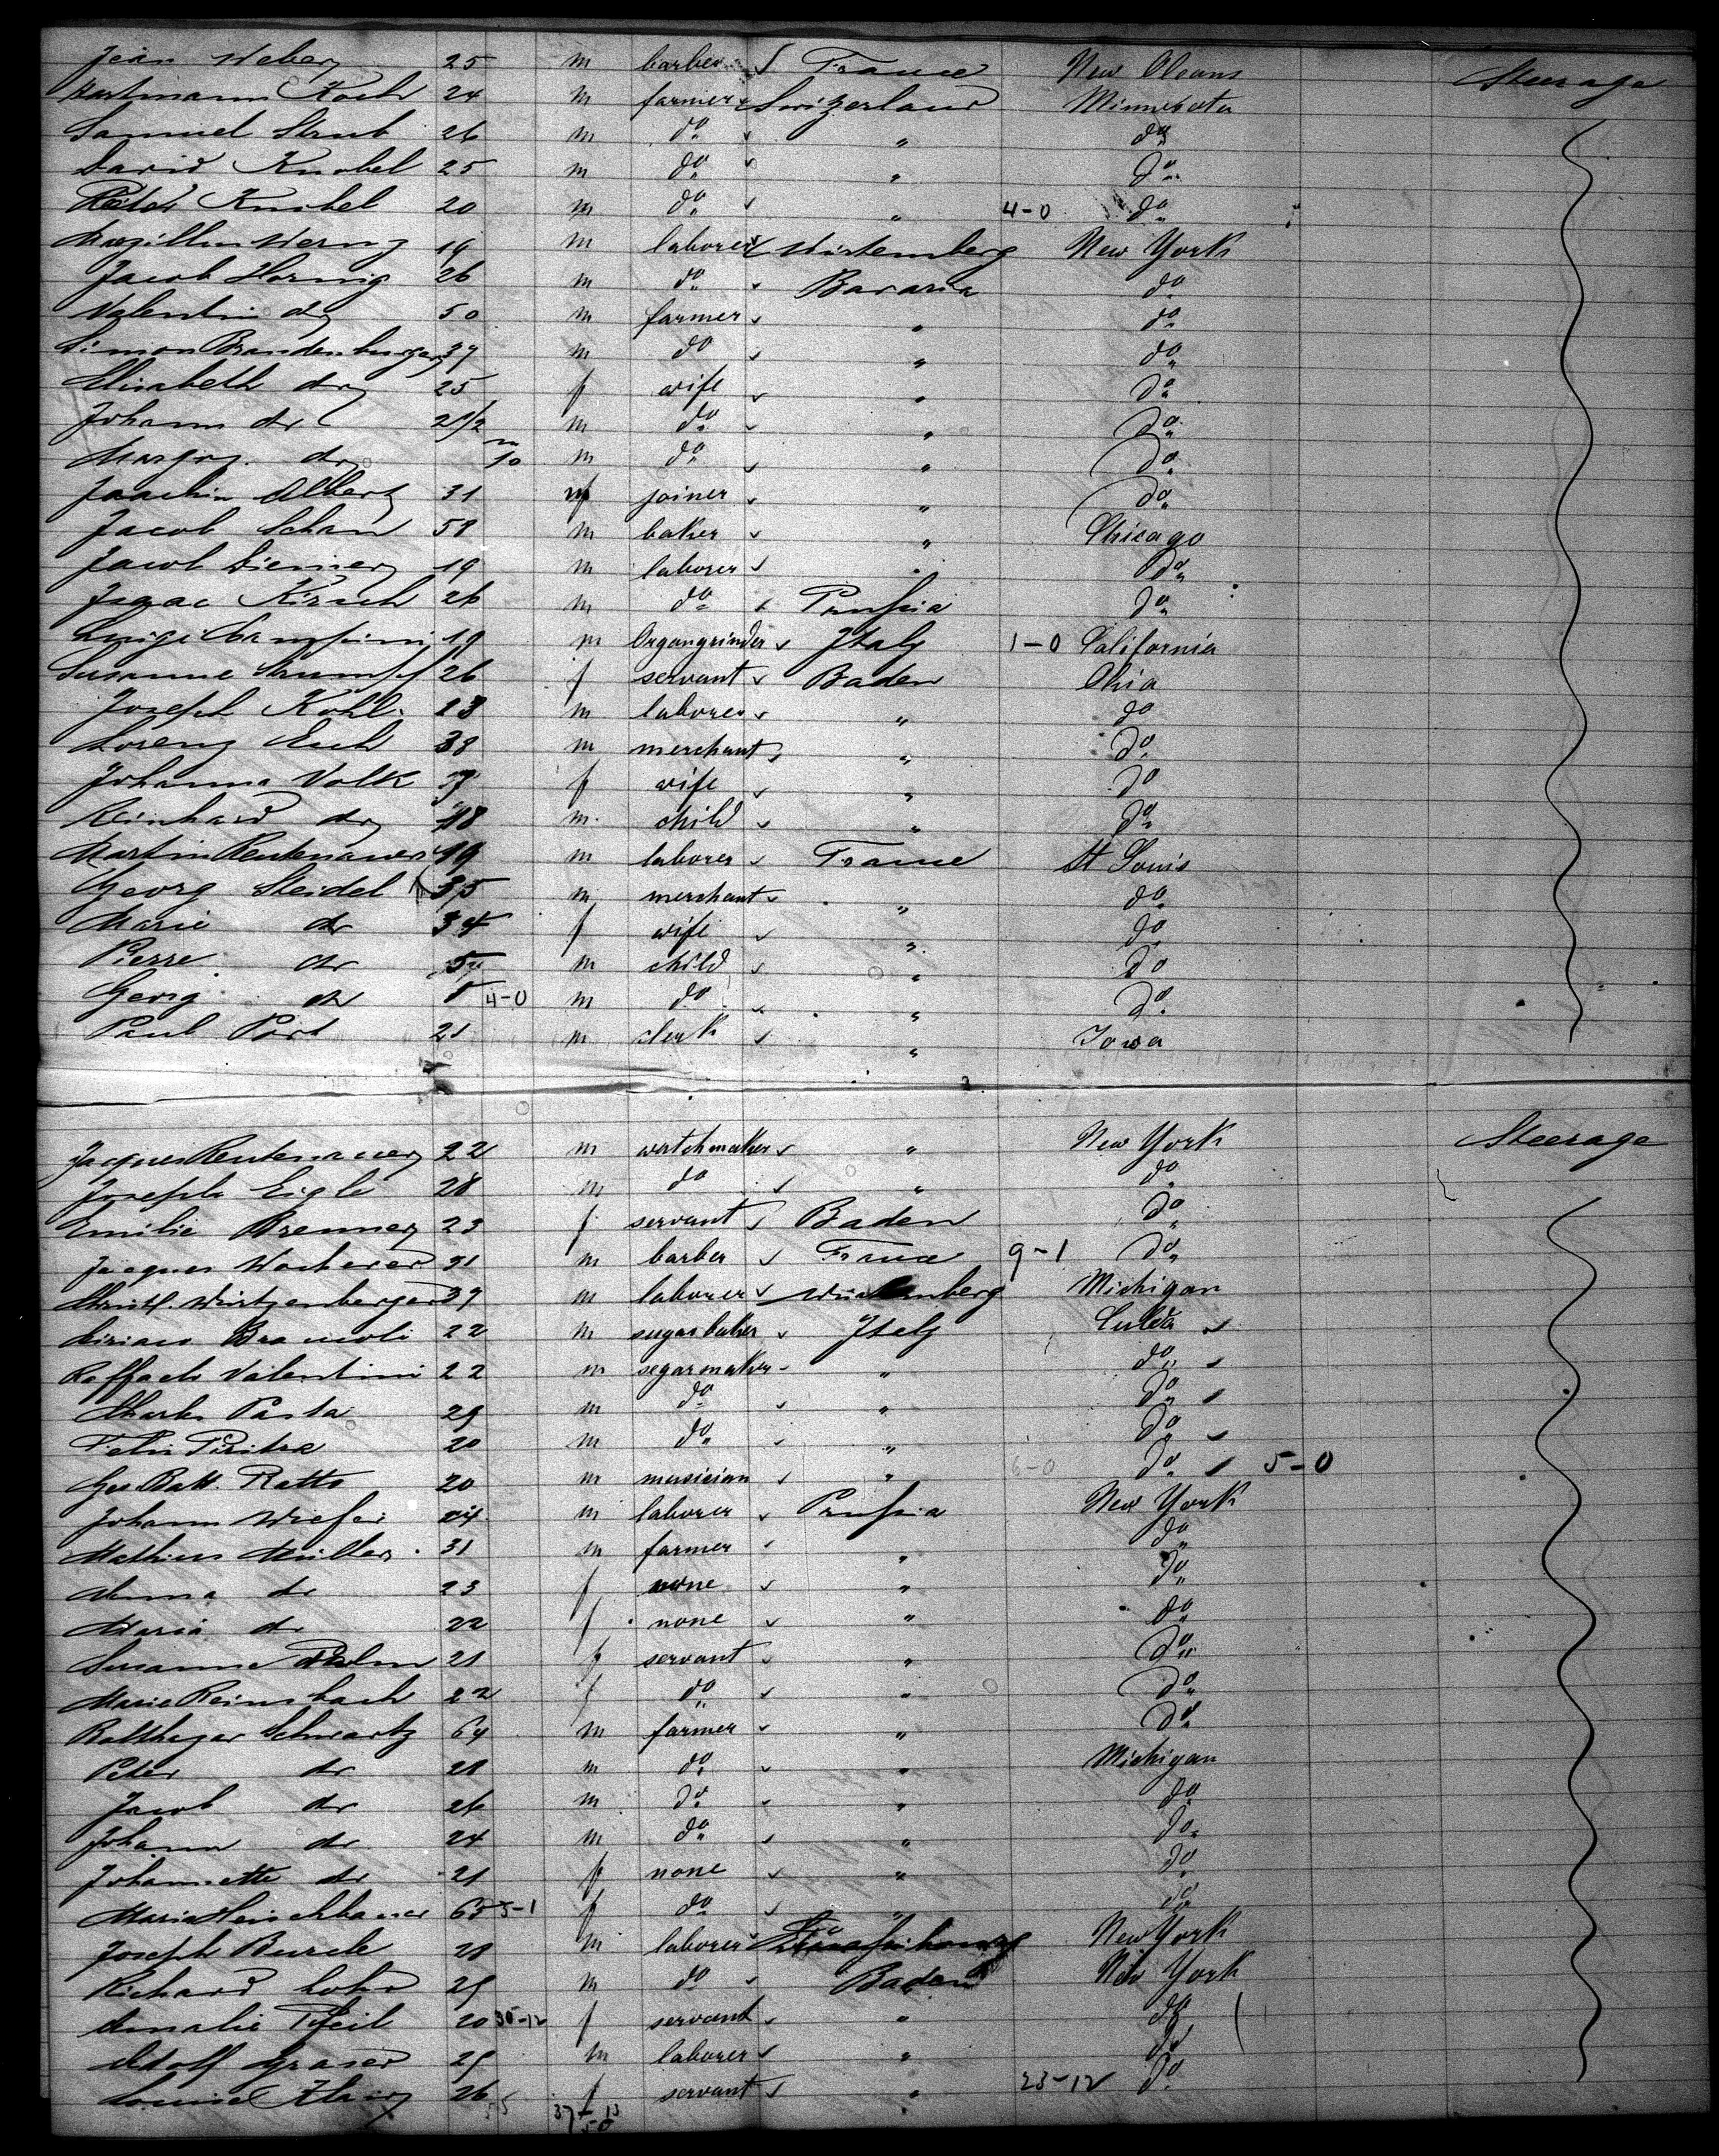 Jean Weber 25 m barber ✓ France New Oleans Steerage
Hartmann Koch 24 m farmer ✓ Switzerland Minnesota
Samuel Strub 26 m do ✓ " do
David Knobel 25 m do ✓ " do
Peter Knobel 20 m do ✓ " 4-0 do
19 m laborer ✓ Wirtemberg New York
Jacob Hornig 26 m do ✓ Bavaria do
Valentin do 50 m farmer ✓ " do
Simon Brandenburger 37 m do ✓ " do
Elisabeth do 25 f wife ✓ " do
Johann do 2 1/2 m do ✓ " do
Margar. do m 10 m do ✓ " do
Joachim Albert 31 m joiner ✓ " do
Jacob Schan 58 m baker ✓ " Chicago
Jacob Diemer 19 m laborer ✓ " do
Kirsch 26 m do ✓ Prussia do
Luigi 19 m Organgrinder ✓ Italy 1-0 California
Susanne Stumpf 26 f servant ✓ Baden Ohio
Joseph Kohl 23 m laborer ✓ " do
Lorenz Esch 38 m merchant ✓ " do
Johanna Volk f wife ✓ " do
Reinhard do m child ✓ " do
Martin Reutenauer 19 m laborer ✓ France St Louis
Georg Steidel 35 m merchant ✓ " do
Marie do 34 f wife ✓ " do
Pierre do 5 m child ✓ " do
Georg do 4-0 m do ✓ " do
Paul Port 21 m clerk ✓ " Iowa
Jacques Reutenauer 22 m watchmaker ✓ " New York Steerage
Joseph Eigle 28 m do ✓ " do
Emilie Brenner 23 f servant ✓ Baden do
Jacques Wocherer 31 m barber ✓ France 9-1 do
Christ. Wirtzenberger 39 m laborer ✓ Michigan
22 m sugarbaker ✓ Italy ✓
Raffaele Valentini 22 m segarmaker " do ✓
Charles Pasta 29 m do ✓ " do ✓
Felix 20 m do ✓ " do ✓
Batt. Ratto 20 m musician ✓ " 6-0 do ✓ 5-0
Johann 24 m laborer ✓ Prussia New York
Mathias Müller 31 m farmer ✓ " do
Anna do 23 f none ✓ " do
Maria do 22 f none ✓ " do
Susanna 21 f servant ✓ " do
Marie Reinsbach 22 f do ✓ " do
Balthazar Schwartz 64 m farmer ✓ " do
Peter do 28 m do ✓ " Michigan
Jacob do 26 m do ✓ " do
Johann do 24 m do ✓ " do
Johannette do 21 f none ✓ " do
Maria 5-1 f do ✓ " do
Joseph 28 m laborer New York
Richard Lohr 25 m do ✓ Baden New York
Amalie Pfeil 20 35-12 f servant ✓ " do
Adolf Graser 25 m laborer ✓ " do
Louise 26 f servant ✓ " 23-12 do
37-13
50